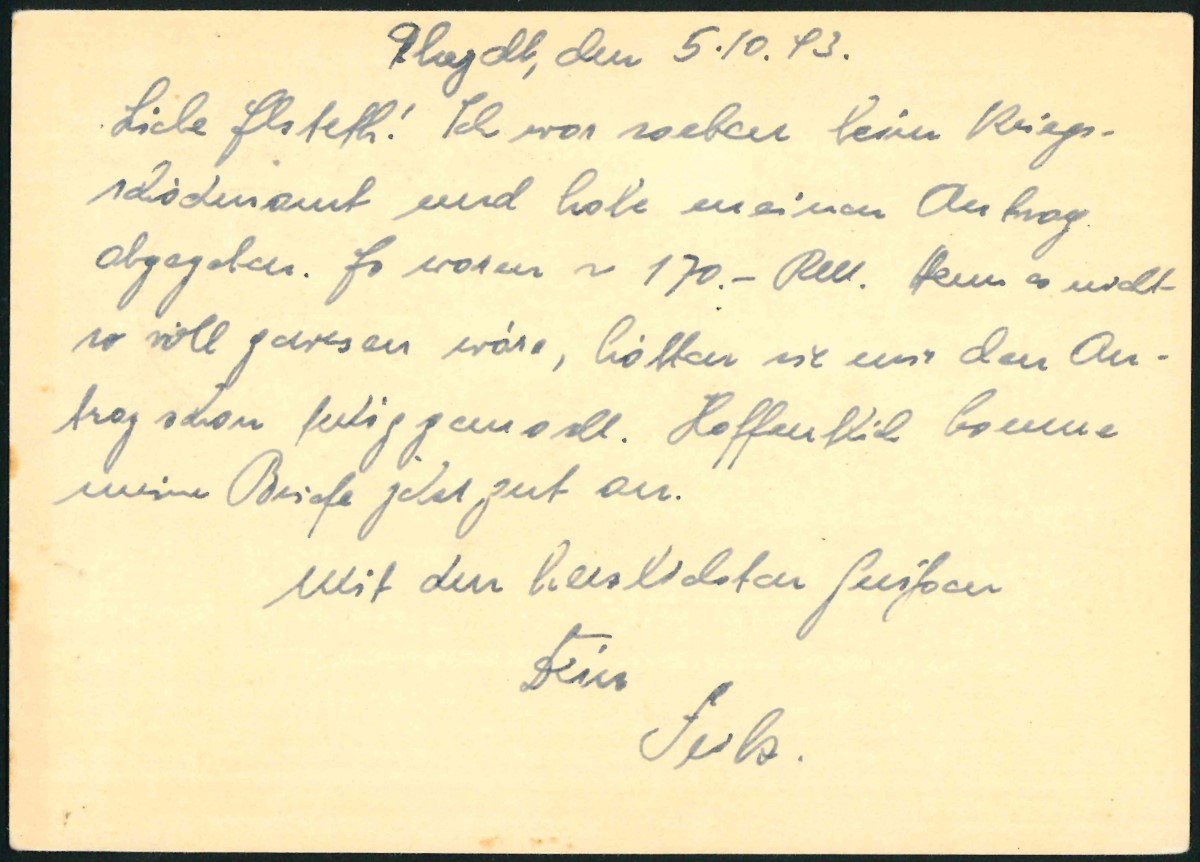 Rheydt, den 5.10.43.
Liebe Elsbeth! Ich war soeben beim Kriegs-
schädenamt und habe meinen Antrag
abgegeben. Es waren ~ 170.– RM. Wenn es nicht
so voll gewesen wäre, hätten sie mir den An-
trag schon fertiggemacht. Hoffentlich komme
meine Briefe jetzt gut an.
Mit den herzlichsten Grüßen
Dein